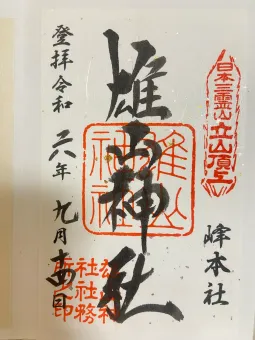 日本三霊山立山頂上
峰本社
雄山神社
雄山神社
登拝令和六年九月十四日
雄山神社社務所之印